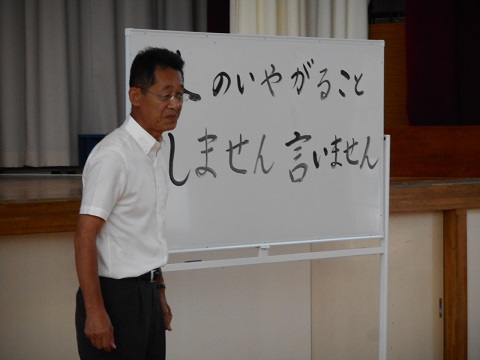 人のいやがること
しません 言いません